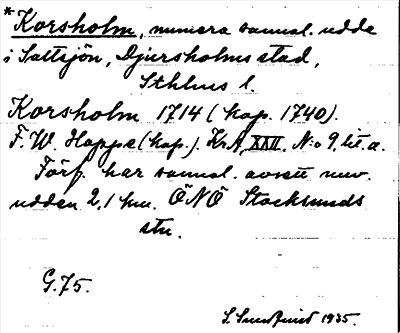 *Korsholm, numera samml. udde
i Saltsjön, Djursholms stad,
Sthlms l.
Korsholm 1714 (kop. 1740).
F. W. Hoppe (kop.). KrA, XXII, No 9, lit. a.
Förf. har samml. avsett nuv.
udden 2,1 km. ÖNÖ Stocksunds
stn.
G.75.
S. Sundquist 1935.